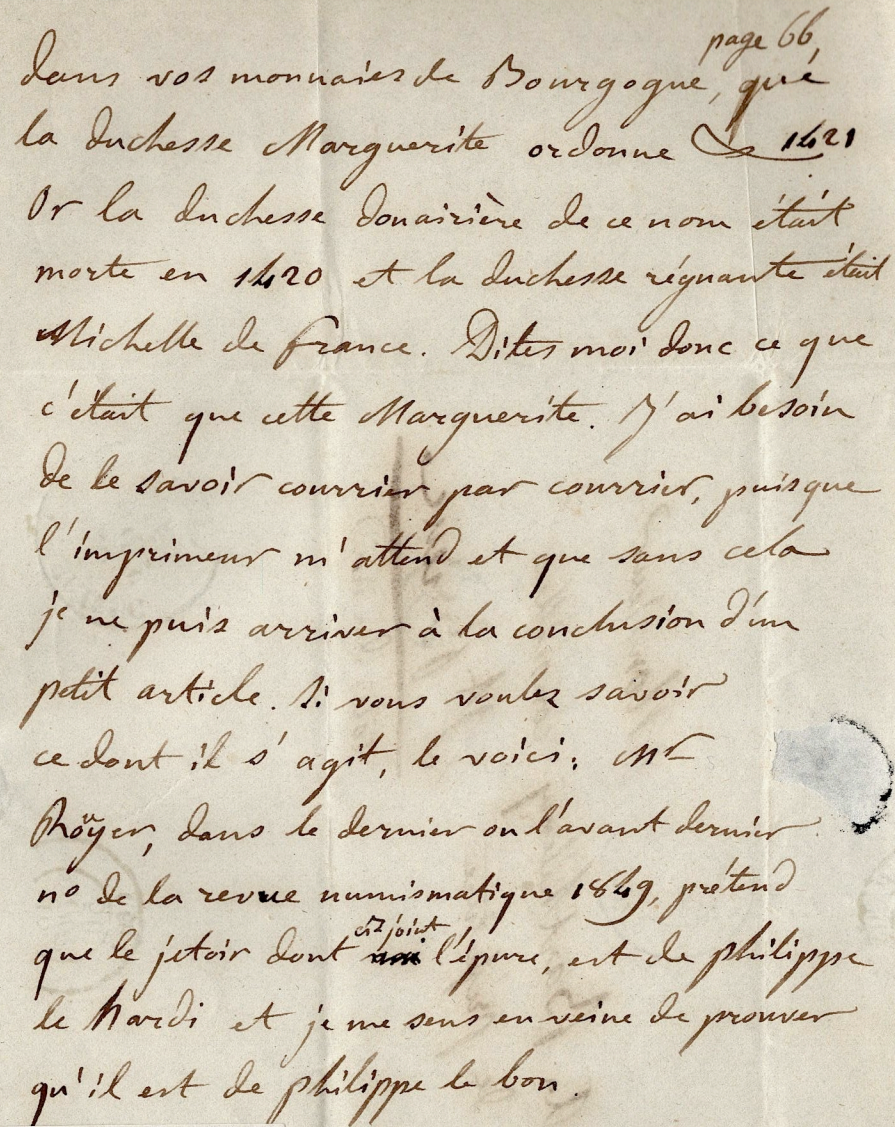 page 66,
dans vos monnaies de Bourgogne, que
la duchesse Marguerite ordonne 1421
Or la duchesse douairière de ce nom était
morte en 1420 et la duchesse régnante était
Michelle de france. Dites moi donc ce que
c'était que cette Marguerite. J'ai besoin
de le savoir courrier par courrier, puisque
l'imprimeur m'attend et que sans cela
je ne puis arriver à la conclusion d'un
petit article. Si vous voulez savoir
ce dont il s'agit, le voici: Mr
Röyer, dans le dernier ou l'avant dernier
no de la revue numismatique 1849, prétend
ci joint
que le jetoir dont l'épure, est de philippe
le hardi et je me sens en veine de prouver
qu'il est de philippe le bon.